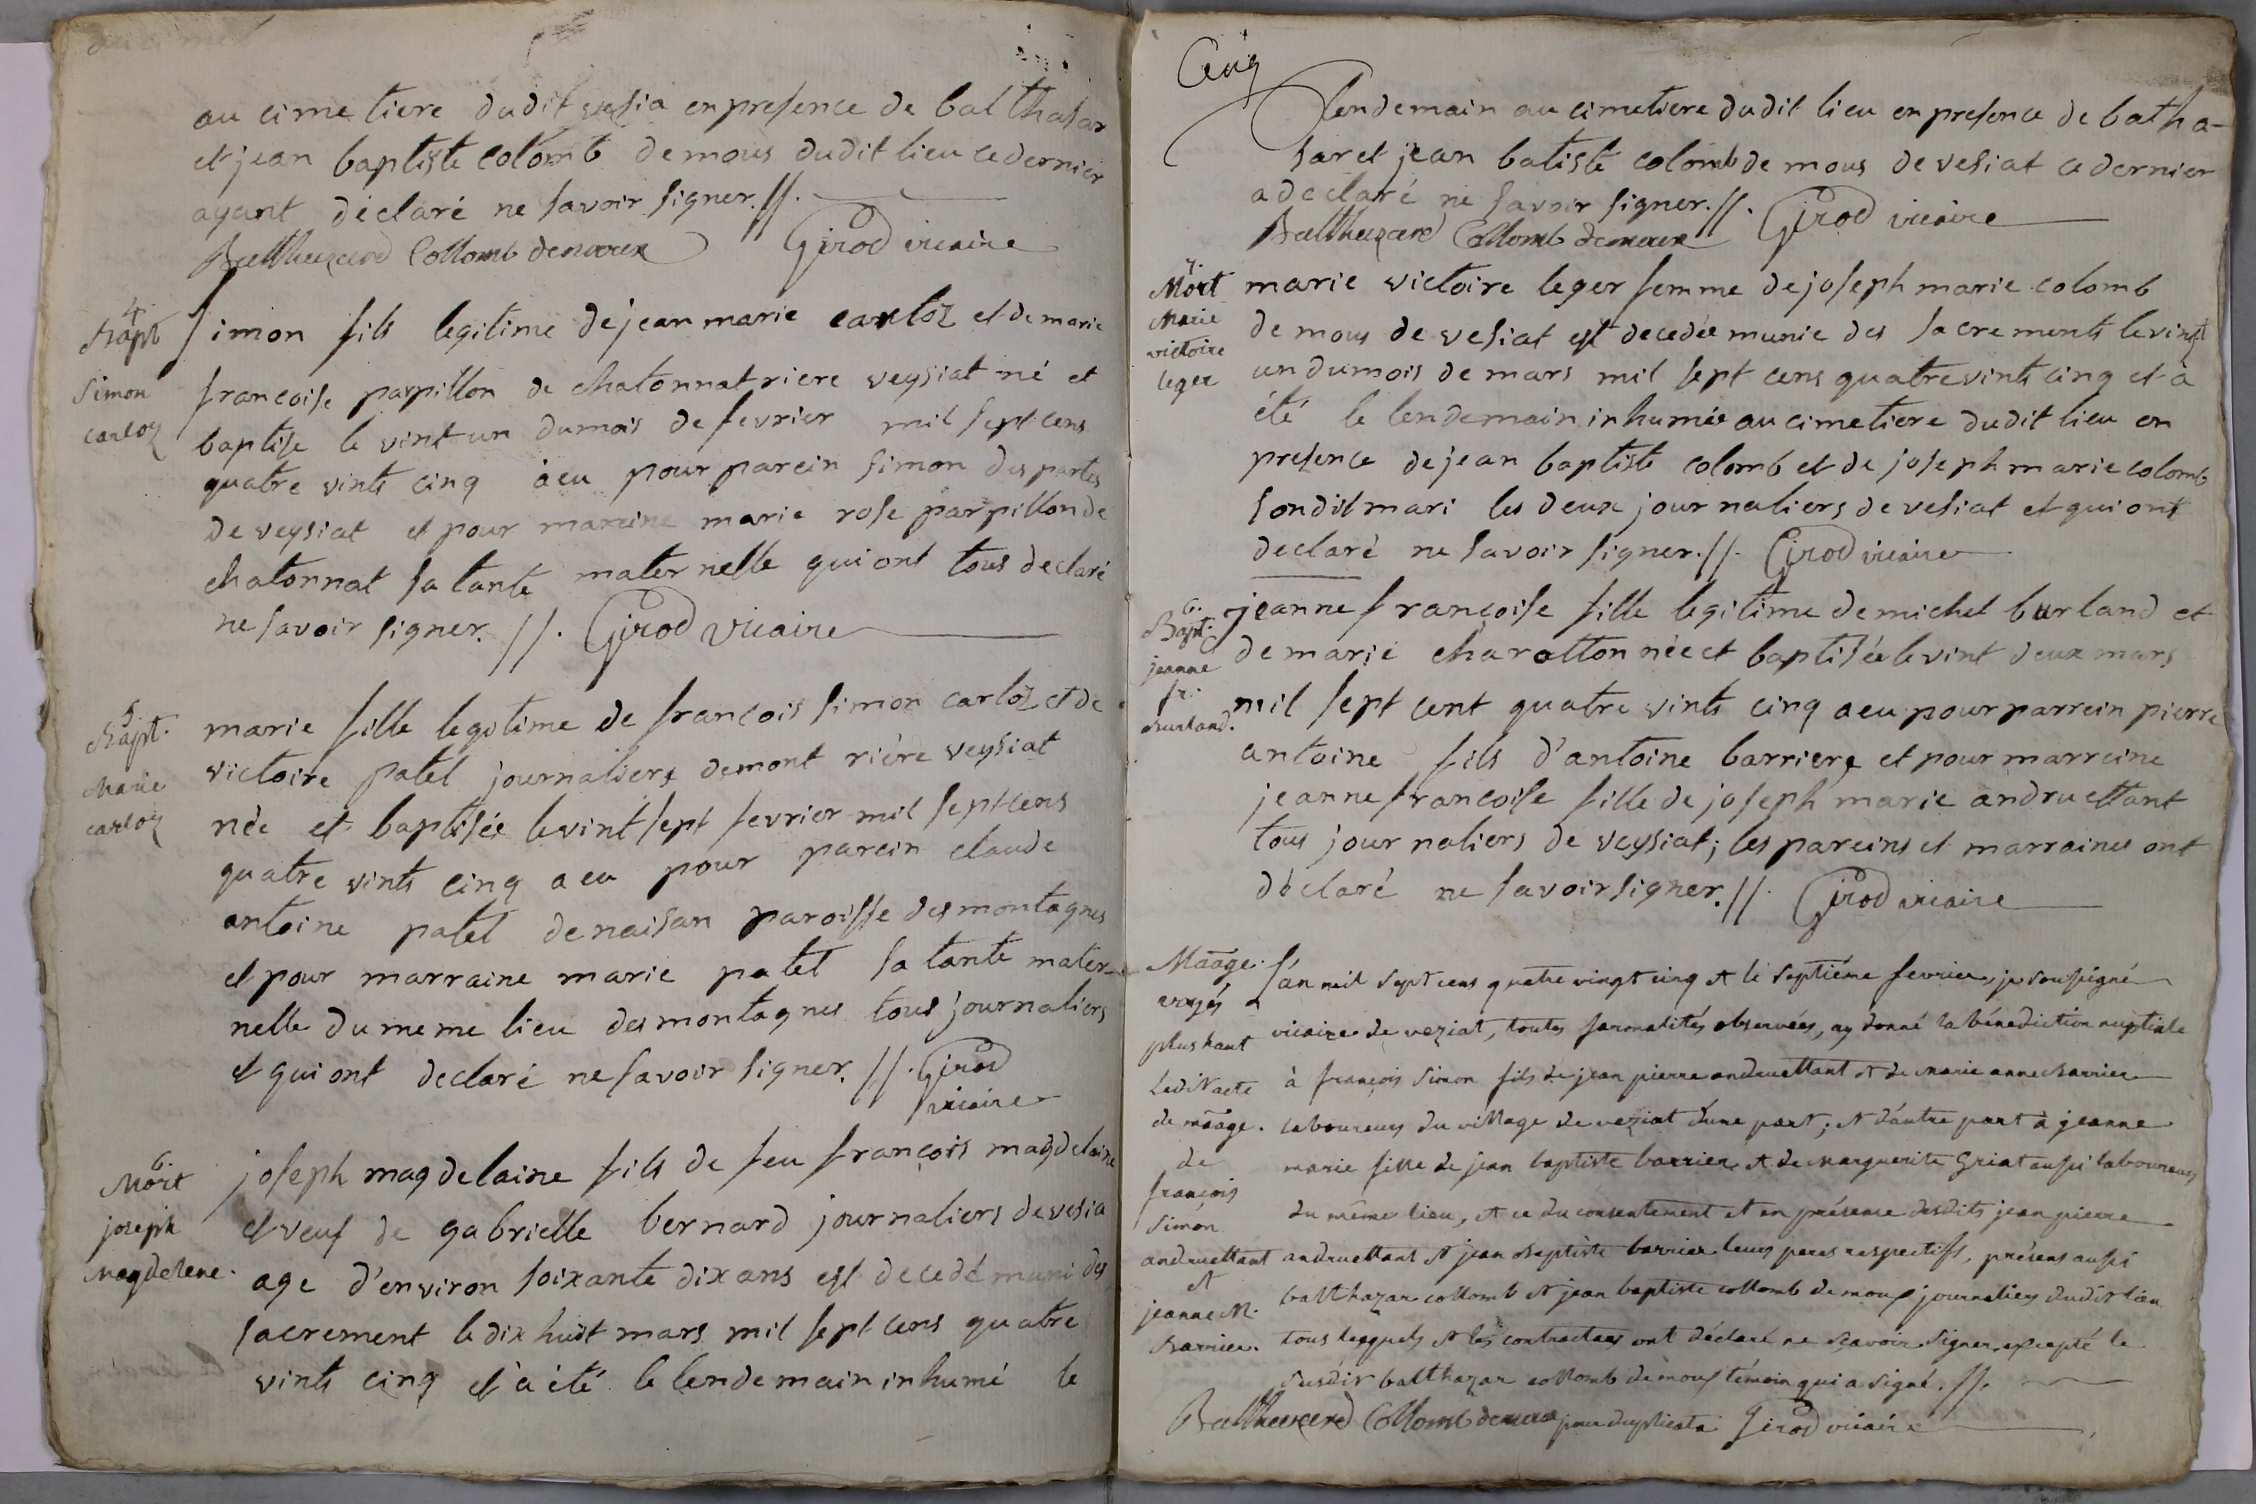 au cimetiere dudit vesia en presence de balthasar
et jean baptiste colomb demous dudit lieu ce dernier
ayant déclaré ne savoir signer. //.
Balthazard Collomb demoux Girod vicaire
4.
Bapt
Simon
carloz
Simon fils legitime de jean marie carloz et de marie
francoise parpillon de chatonnat riere veysiat né et
baptise le vint un du mois de fevrier mil sept cens
quatre vints cinq a eu pour parein simon des partes
de veysiat et pour mareine marie rose parpillon de
chatonnat sa tante maternelle qui ont tous declaré
ne savoir signer. //. Girod vicaire
5.
Bapt.
Marie
carloz
marie fille legitime de francois simon carloz et de
victoire patel journaliers demont riére veysiat
née et baptisée le vint sept fevrier mil sept cens
quatre vints cinq a eu pour parein claude
antoine patel de naisan paroisse des montagnes
et pour marraine marie patel sa tante mater-
nelle du meme lieu des montagnes tous journaliers
et qui ont declaré ne savoir signer. //. Girod
vicaire
6.
Mort
joseph
Magdelene.
joseph magdelaine fils de feu françois magdelaine
et veuf de gabrielle bernard journaliers de vesia
age d'environ soixante dix ans est decedé muni des
sacrement le dix huit mars mil sept cens quatre
vints cinq et à été le lendemain inhumé le
Cinq
lendemain au cimetiere dudit lieu en presence de batha-
sar et jean batiste colomb de mous de vesiat ce dernier
a declaré ne savoir signer. //. Girod vicaire
Balthazard Collomb demoux
7.
Mort
Marie
victoire
leger
marie victoire leger femme de joseph marie colomb
de mous de vesiat est decedée munie des sacrements le vingt
un du mois de mars mil sept cens quatre vints cinq et à
été le lendemain inhumée au cimetiere dudit lieu en
presence de jean baptiste colomb et de joseph marie colomb
sondit mari les deux journaliers de vesiat et qui ont
declaré ne savoir signer. //. Girod vicaire
6.
Bapt.
jeanne
fr.
Burland.
jeanne françoise fille legitime de michel burland et
de marie charatton née et baptisée le vint deux mars
mil sept cent quatre vints cinq a eu pour parrein pierre
antoine fils d'antoine barriere et pour marreine
jeanne francoise fille de joseph marie andruettant
tous journaliers de veysiat; les pareins et marraines ont
déclaré ne savoir signer. //. Girod vicaire
Maage.
plus haut
Ledit acte
de maage.
de
françois
Simon
andruettant
et
jeanne M.
Barrier.
L'an mil sept cens quatre vingt cinq et le septiéme fevrier, je soussigné
vicaire de veziat, toutes formalités observées, ay donné la bénediction nuptiale
à françois Simon fils de jean pierre andruettant et de marie anne Barrier
laboureurs du village de veziat d'une part; et d'autre part à jeanne
marie fille de jean baptiste barrier et de marguerite Griat aussi laboureurs
du même lieu, et ce du consentement et en présence desdits jean pierre
andruettant et jean Baptiste barrier leurs peres respectifs, présens aussi
balthazar collomb et jean baptiste collomb de moux journaliers dudit lieu
tous lesquels et les contractans ont déclaré ne sçavoir signer, excepté le
susdit balthazar collomb de moux témoin qui a signé. //.
Balthazard Collomb demoux pour duplicata Girod vicaire